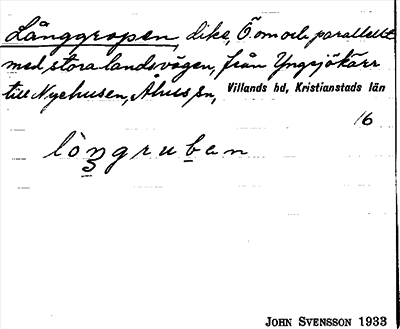 Långgropen, dike, Ö om och parallellt
med stora landsvägen, från Yngsjökärr
till Nyehusen, Åhus sn, Villands hd, Kristianstads län
16
lòngruban
JOHN SVENSSON 1933